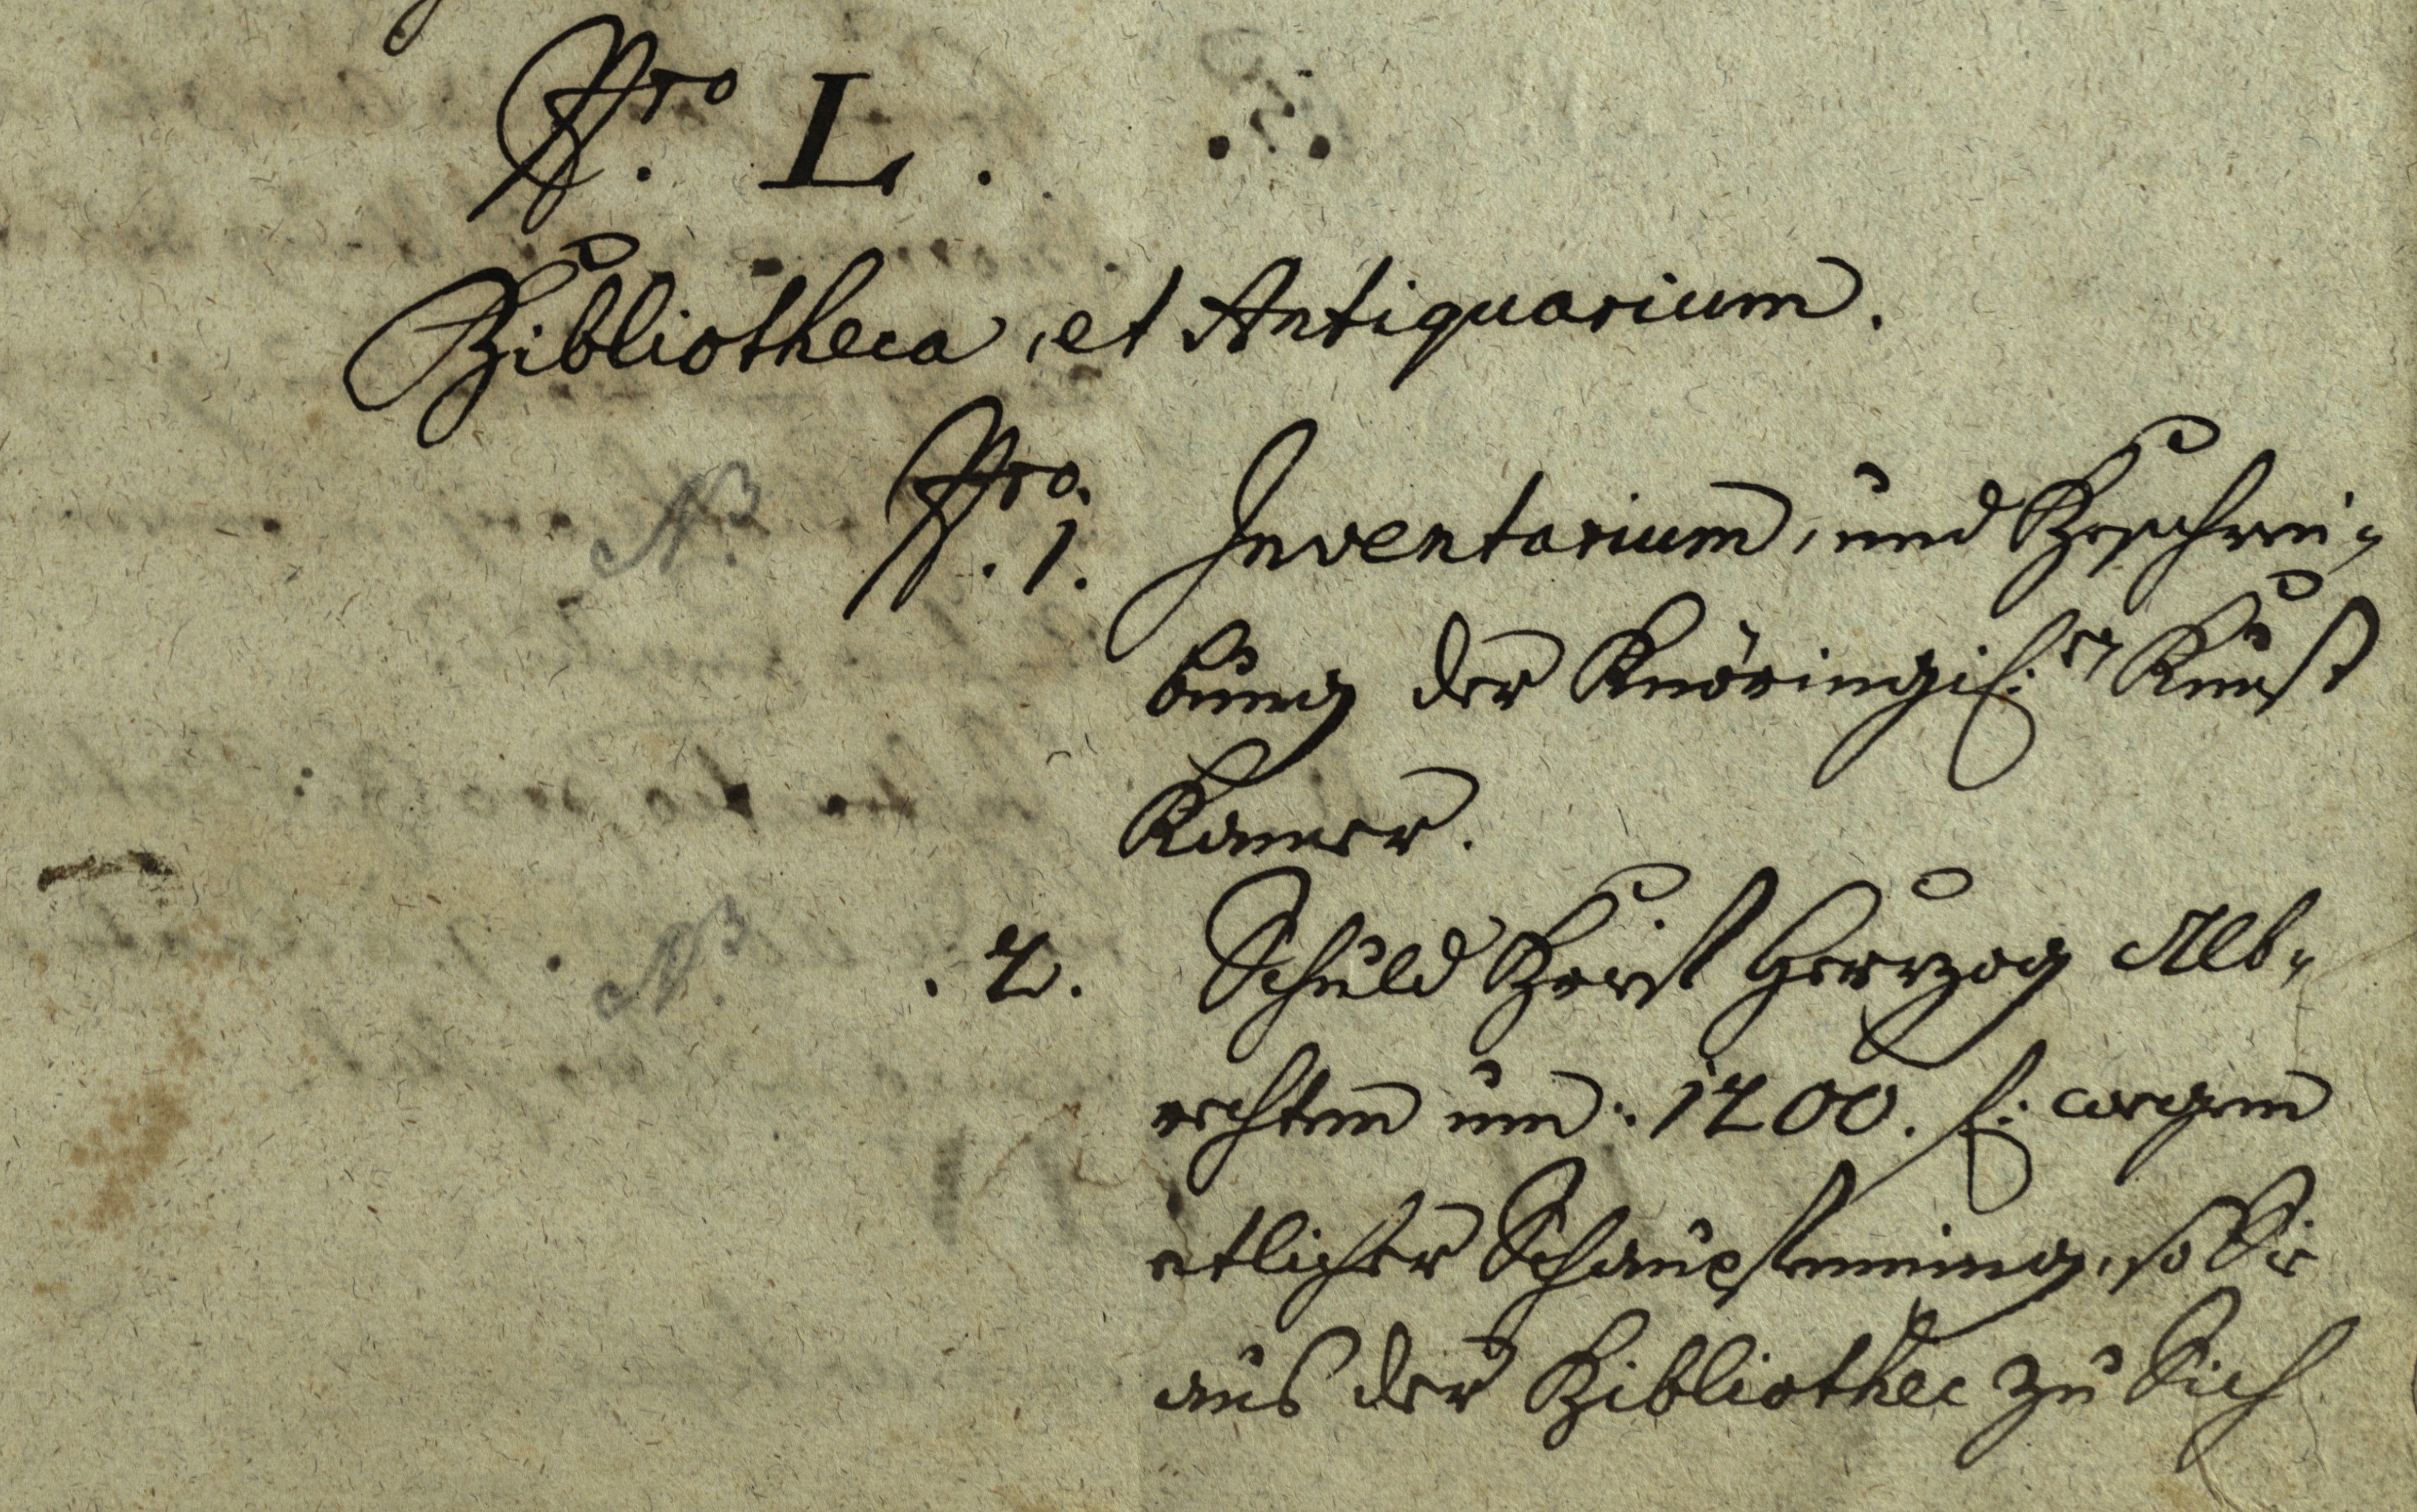 Nro. L.
Bibliotheca, et Antiquarium.
NB. Nro. 1. Inventarium, und Beschrei-
bung der Knöringis: en Kunst
Kamer.
NB. . 2. Schuld Brief Herzog Alb-
rechten um: 1200. f: wegen
etlicher Schaupfenning, so Sie
aus der Bibliothec zu Sich